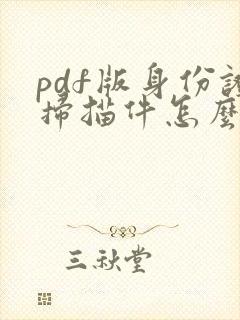 pdf版身份證
掃描件怎麼
三秋堂